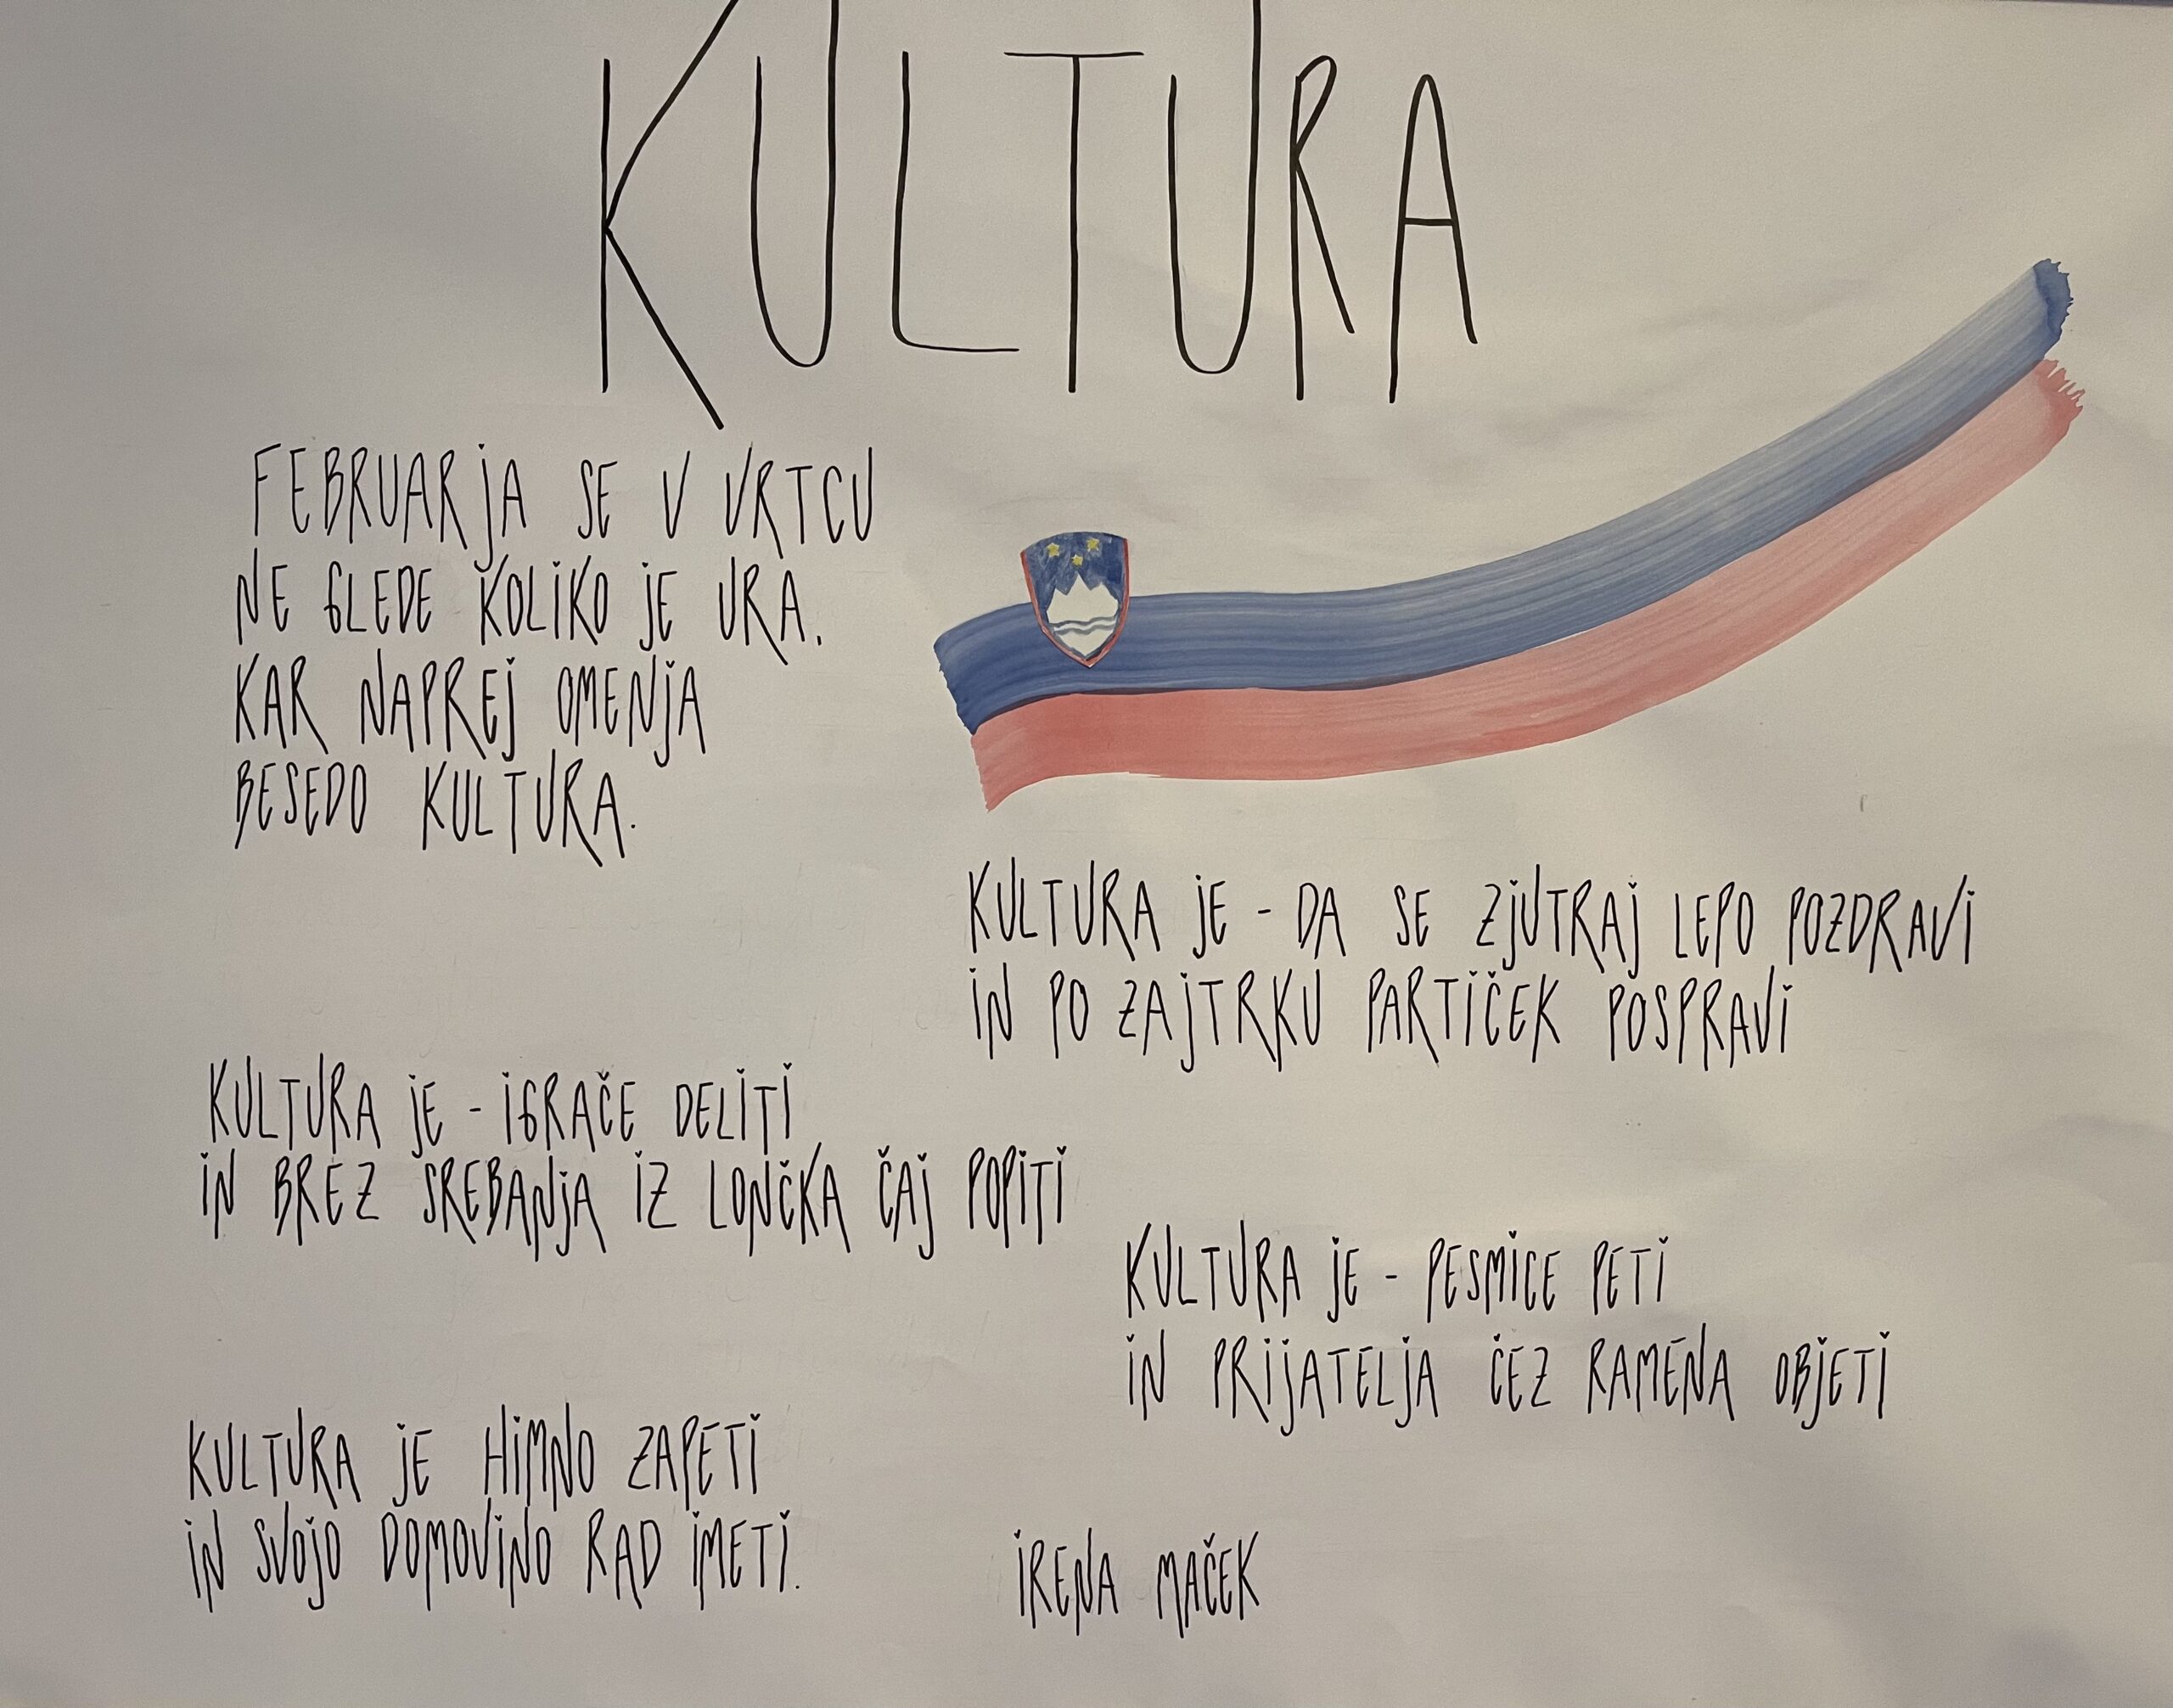 KULTURA
FEBRUARJA SE V VRTCU
NE GLEDE KOLIKO JE URA.
KAR NAPREJ OMENJA
BESEDO KULTURA.
KULTURA JE - DA SE ZJUTRAJ LEPO POZDRAVI
IN PO ZAJTRKU PARTIČEK POSPRAVI
KULTURA JE - IGRAČE DELITI
IN BREZ SREBANJA IZ LONČKA ČAJ POPITI
KULTURA JE - PESMICE PETI
IN PRIJATELJA ČEZ RAMENA OBJETI
KULTURA JE HIMNO ZAPETI
IN SVOJO DOMOVINO RAD IMETI.
IRENA MAČEK